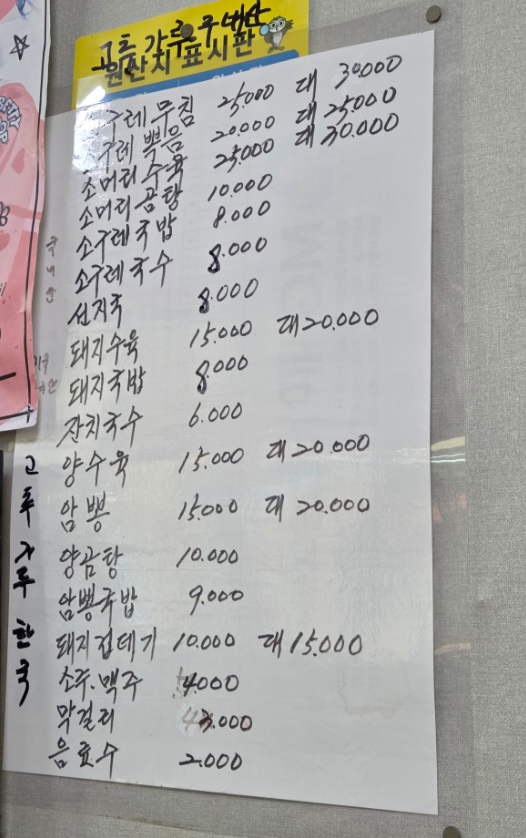 고춧가루 국내산
원산지 표시판
소구레무침 25.000 대 30.000
소구레볶음 20.000 대 25.000
소머리수육 25.000 대 30.000
소머리곰탕 10.000
소구레국밥 8.000
소구레국수 8.000
선지국 8.000
돼지수육 15.000 대 20.000
돼지국밥 8.000
잔치국수 6.000
양수육 15.000 대 20.000
암뽕 15.000 대 20.000
양곰탕 10.000
암뽕국밥 9.000
돼지껍데기 10.000 대 15.000
소주.맥주 4000
막걸리 3.000
음료수 2.000
국내산
한국